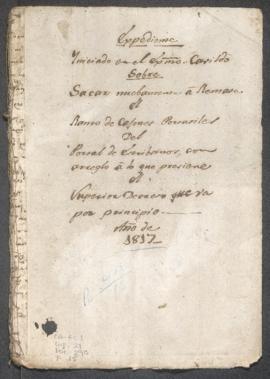 Expediente
Iniciado en el Exmo. Cavildo
Sobre
Sacar nuebamente â Remate
el
Ramo de Caxones Portatiles
Del
Portal de Escribanos, con
arreglo â lo que previene
el
Superior Decreto que va
por principio
Año de
1817